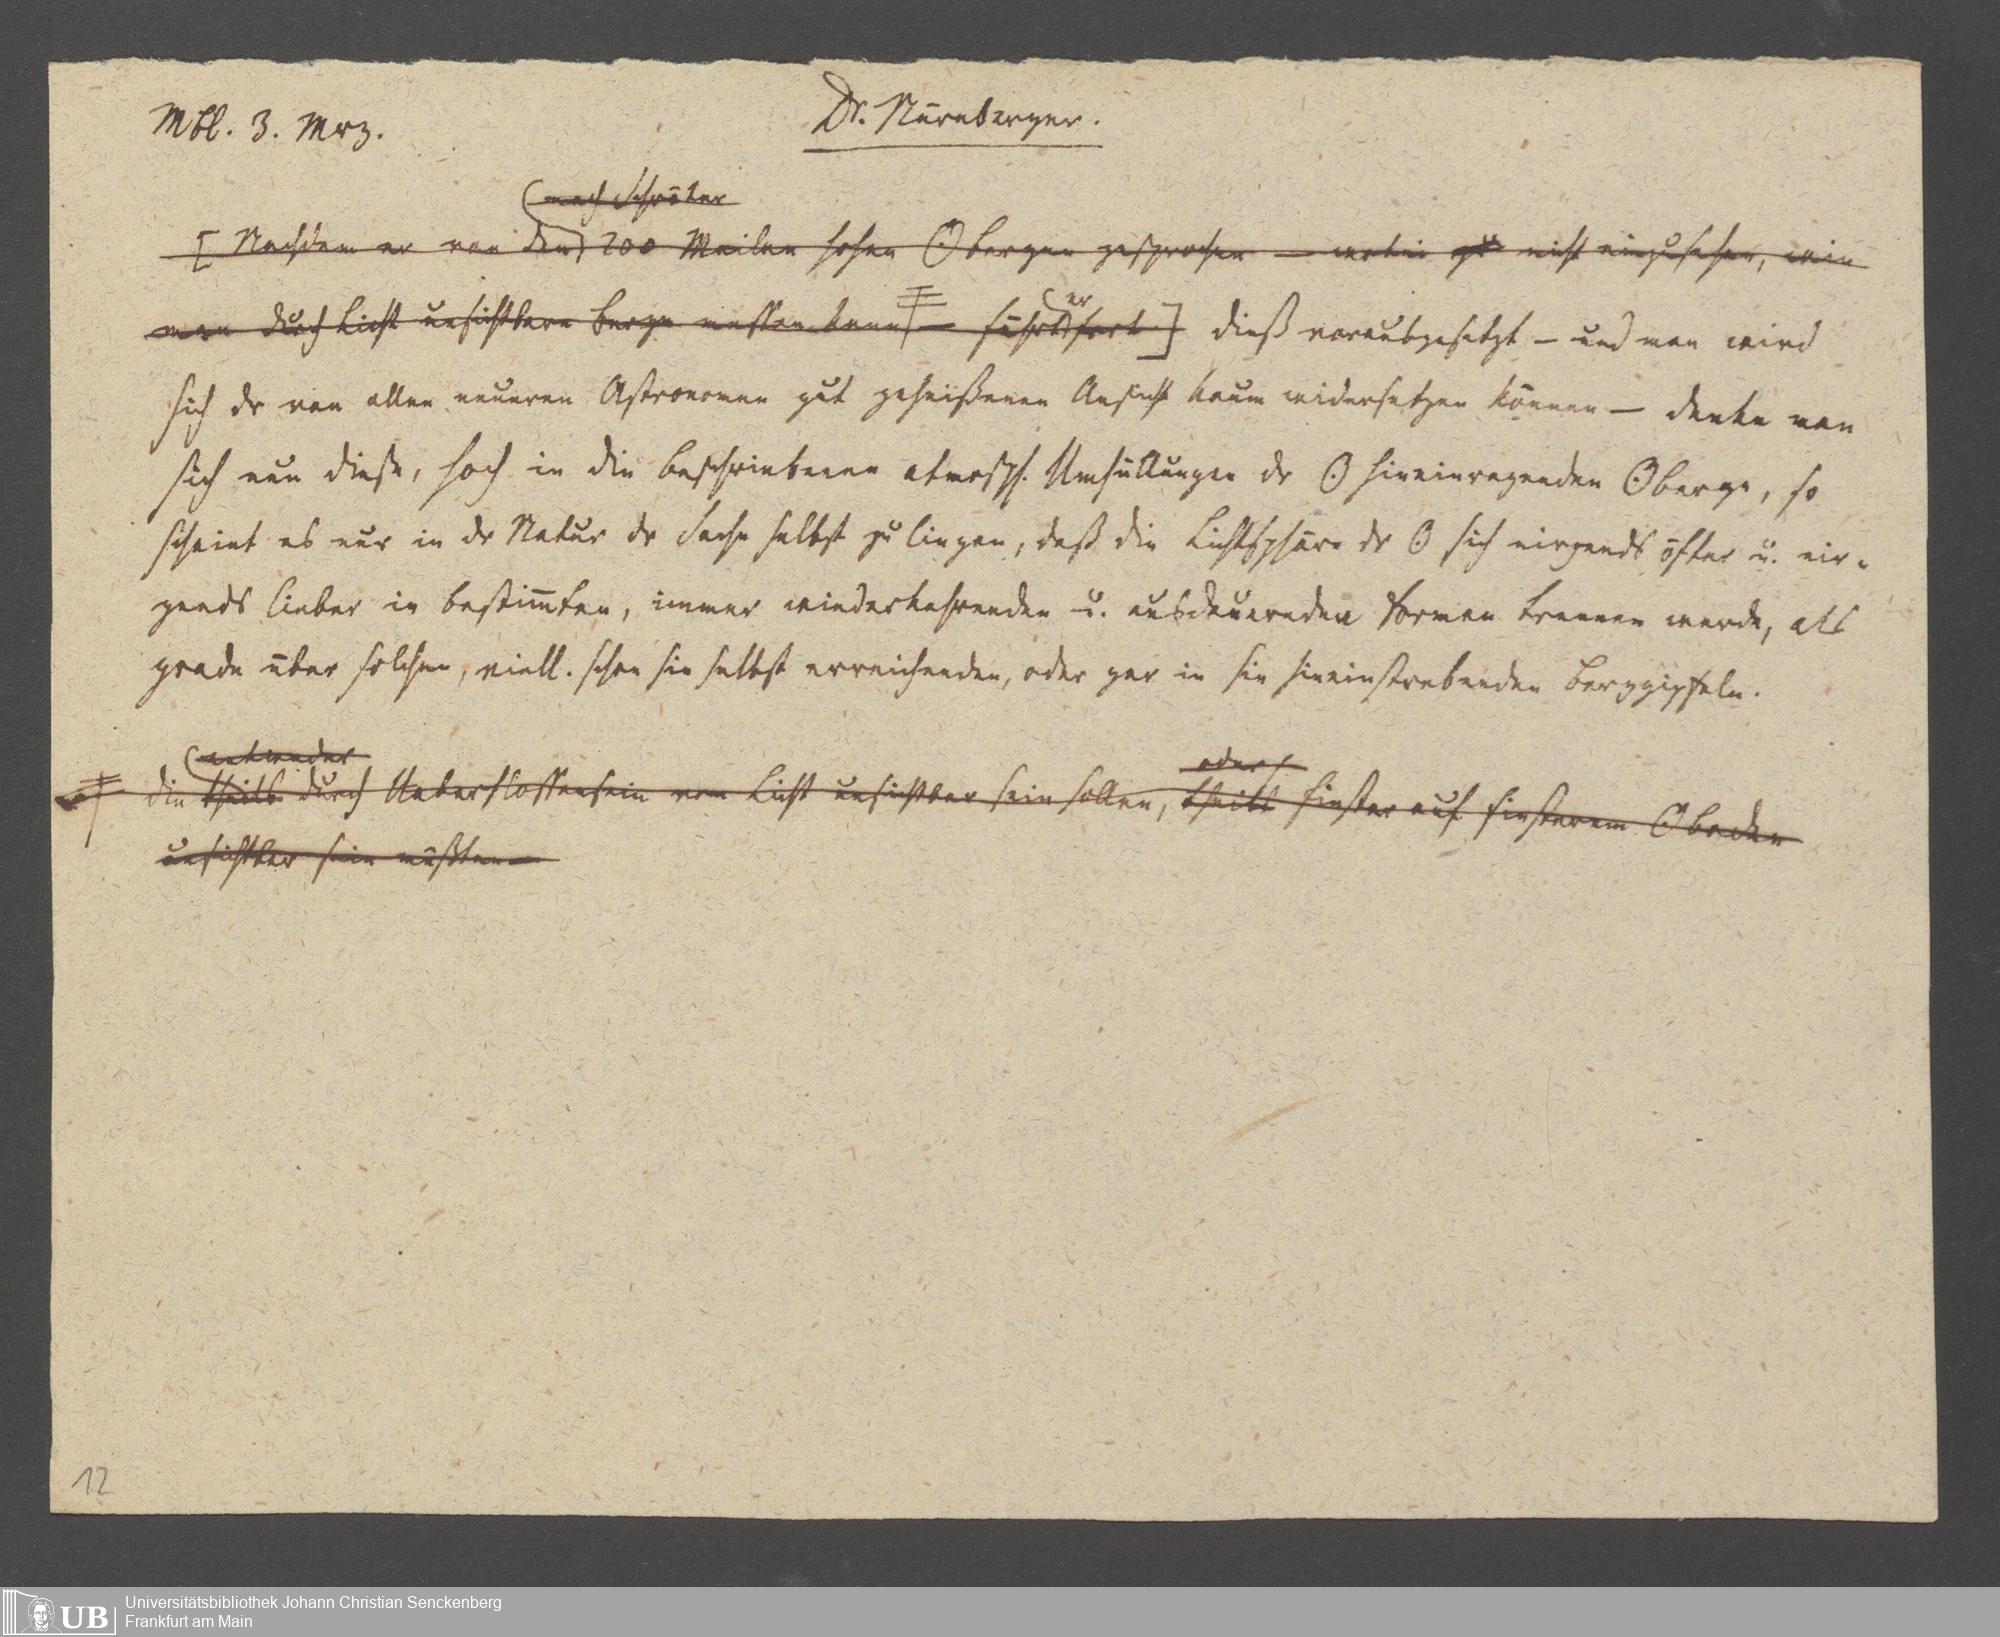 Mbl. 3. Mrz.
Dr. Nürnberger.
nach Schröter
[Nachdem er von den 200 Meilen hohen ☉bergen gesprochen — wobei nicht einzusehen, wie
man durch Licht unsichtbare Berge messen kann — führt er fort] dieß vorausgesetzt — und man wird
sich dr von allen neueren Astronomen gut geheißenen Ansicht kaum widersetzen können — denke man
sich nun diese, hoch in die beschriebenen atmosph. Umhüllungen dr ☉ hineinragenden ☉berge, so
scheint es nur in dr Natur dr Sache selbst zu liegen, daß die Lichtsphäre dr ☉ sich nirgends öfter u. nir-
gends lieber in bestim̅ten, immer wiederkehrenden u. ausdauernden Formen trennen werde, als
grade über solchen, viell. schon sie selbst erreichenden, oder gar in sie hineinstrebenden Berggipfeln.
entweder oder
die theils durch Ueberflossensein vom Licht unsichtbar sein sollen, theils finster auf finsterem ☉boden
unsichtbar sein müßten —
12
UB
Universitätsbibliothek Johann Christian Senckenberg
Frankfurt am Main